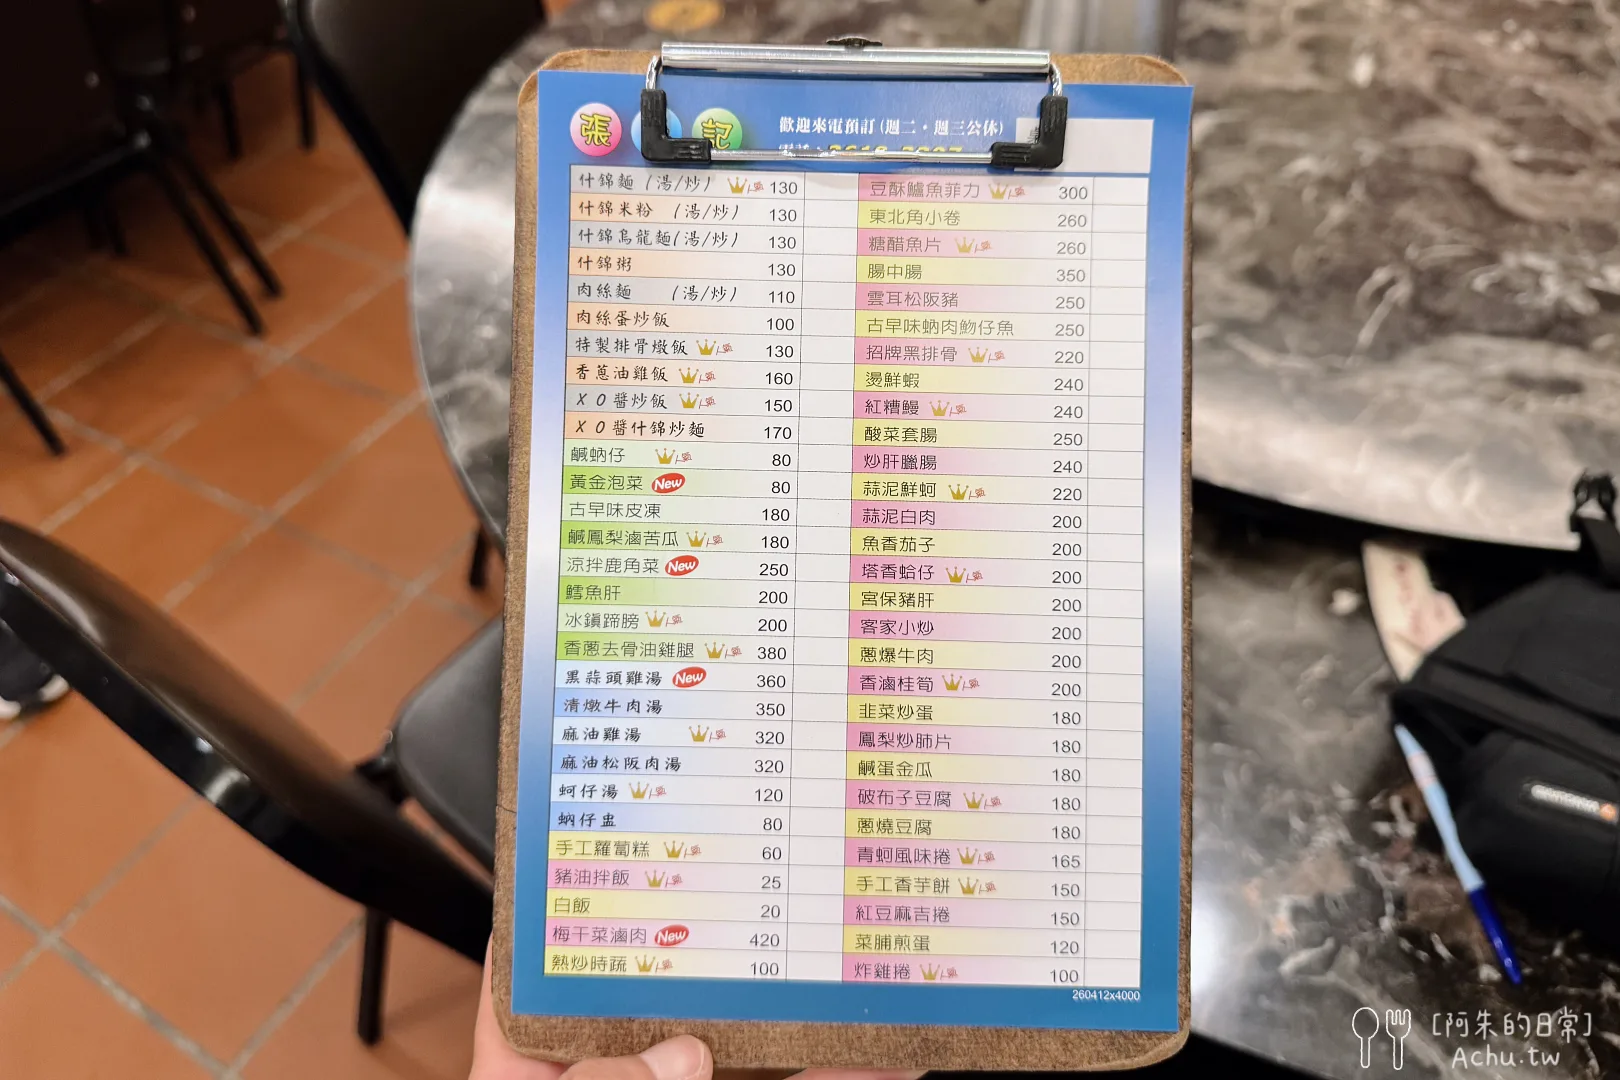 張 記
歡迎來電預訂(週二・週三公休)
什錦麵 (湯/炒) 人氣 130
什錦米粉 (湯/炒) 130
什錦烏龍麵(湯/炒) 130
什錦粥 130
肉絲麵 (湯/炒) 110
肉絲蛋炒飯 100
特製排骨燉飯 人氣 130
香蔥油雞飯 人氣 160
XO醬炒飯 人氣 150
XO醬什錦炒麵 170
鹹蚋仔 人氣 80
黃金泡菜 New 80
古早味皮凍 180
鹹鳳梨滷苦瓜 人氣 180
涼拌鹿角菜 New 250
鱈魚肝 200
冰鎮蹄膀 人氣 200
香蔥去骨油雞腿 人氣 380
黑蒜頭雞湯 New 360
清燉牛肉湯 350
麻油雞湯 人氣 320
麻油松阪肉湯 320
蚵仔湯 人氣 120
蚋仔盅 80
手工羅蔔糕 人氣 60
豬油拌飯 人氣 25
白飯 20
梅干菜滷肉 New 420
熱炒時蔬 人氣 100
豆酥鱸魚菲力 人氣 300
東北角小卷 260
糖醋魚片 人氣 260
腸中腸 350
雲耳松阪豬 250
古早味蚋肉魩仔魚 250
招牌黑排骨 人氣 220
燙鮮蝦 240
紅糟鰻 人氣 240
酸菜套腸 250
炒肝臘腸 240
蒜泥鮮蚵 人氣 220
蒜泥白肉 200
魚香茄子 200
塔香蛤仔 人氣 200
宮保豬肝 200
客家小炒 200
蔥爆牛肉 200
香滷桂筍 人氣 200
韭菜炒蛋 180
鳳梨炒肺片 180
鹹蛋金瓜 180
破布子豆腐 人氣 180
蔥燒豆腐 180
青蚵風味捲 人氣 165
手工香芋餅 人氣 150
紅豆麻吉捲 150
菜脯煎蛋 120
炸雞捲 人氣 100
260412x4000
[阿朱的日常]
Achu.tw